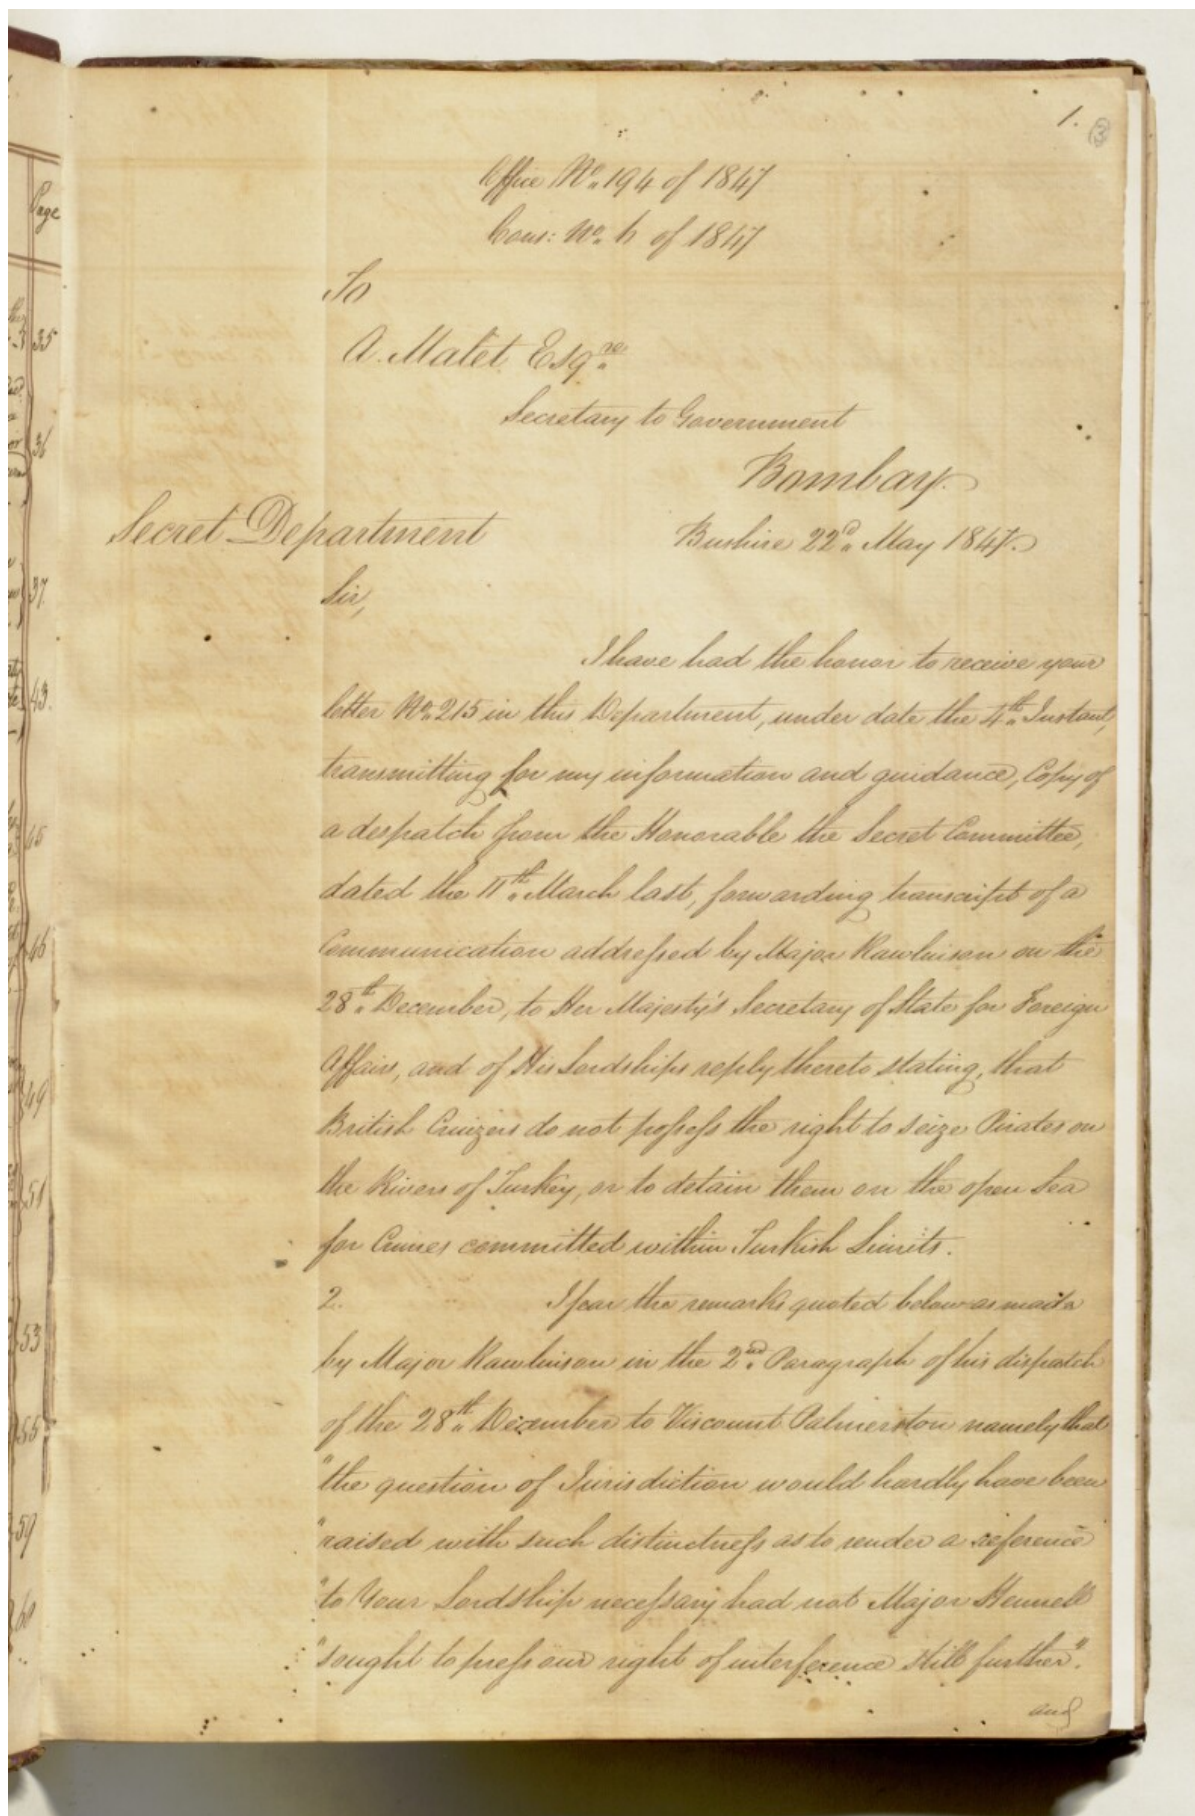 1.
3
Office No. 194 of 1847
Cons: No. 6 of 1847
To
A. Malet Esqre
Secretary to Government
Bombay.
Secret Department
Bushire 22d May 1847.
Sir,
I have had the honor to receive your
letter No. 215 in this Department, under date the 4th Instant,
transmitting for my information and guidance, Copy of
a despatch from the Honorable the Secret Committee,
dated the 11th March last, forwarding transcript of a
Communication addressed by Major Rawlinson on the
28th December, to Her Majesty's Secretary of State for Foreign
Affairs, and of His Lordships reply thereto stating, that
British Cruizers do not possess the right to seize Pirates on
the Rivers of Turkey, or to detain them on the open Sea
for Crimes committed within Turkish Limits.
2. I fear the remarks quoted below as made
by Major Rawlinson in the 2nd Paragraph of his dispatch
of the 28th December to Viscount Palmerston namely that
"the question of Jurisdiction would hardly have been
"raised with such distinctness as to render a reference
"to Your Lordship necessary had not Major Hennell
"sought to press our right of interference still further".
and
Page
35
36
37
43.
45
46
49
51
53
55
59
60